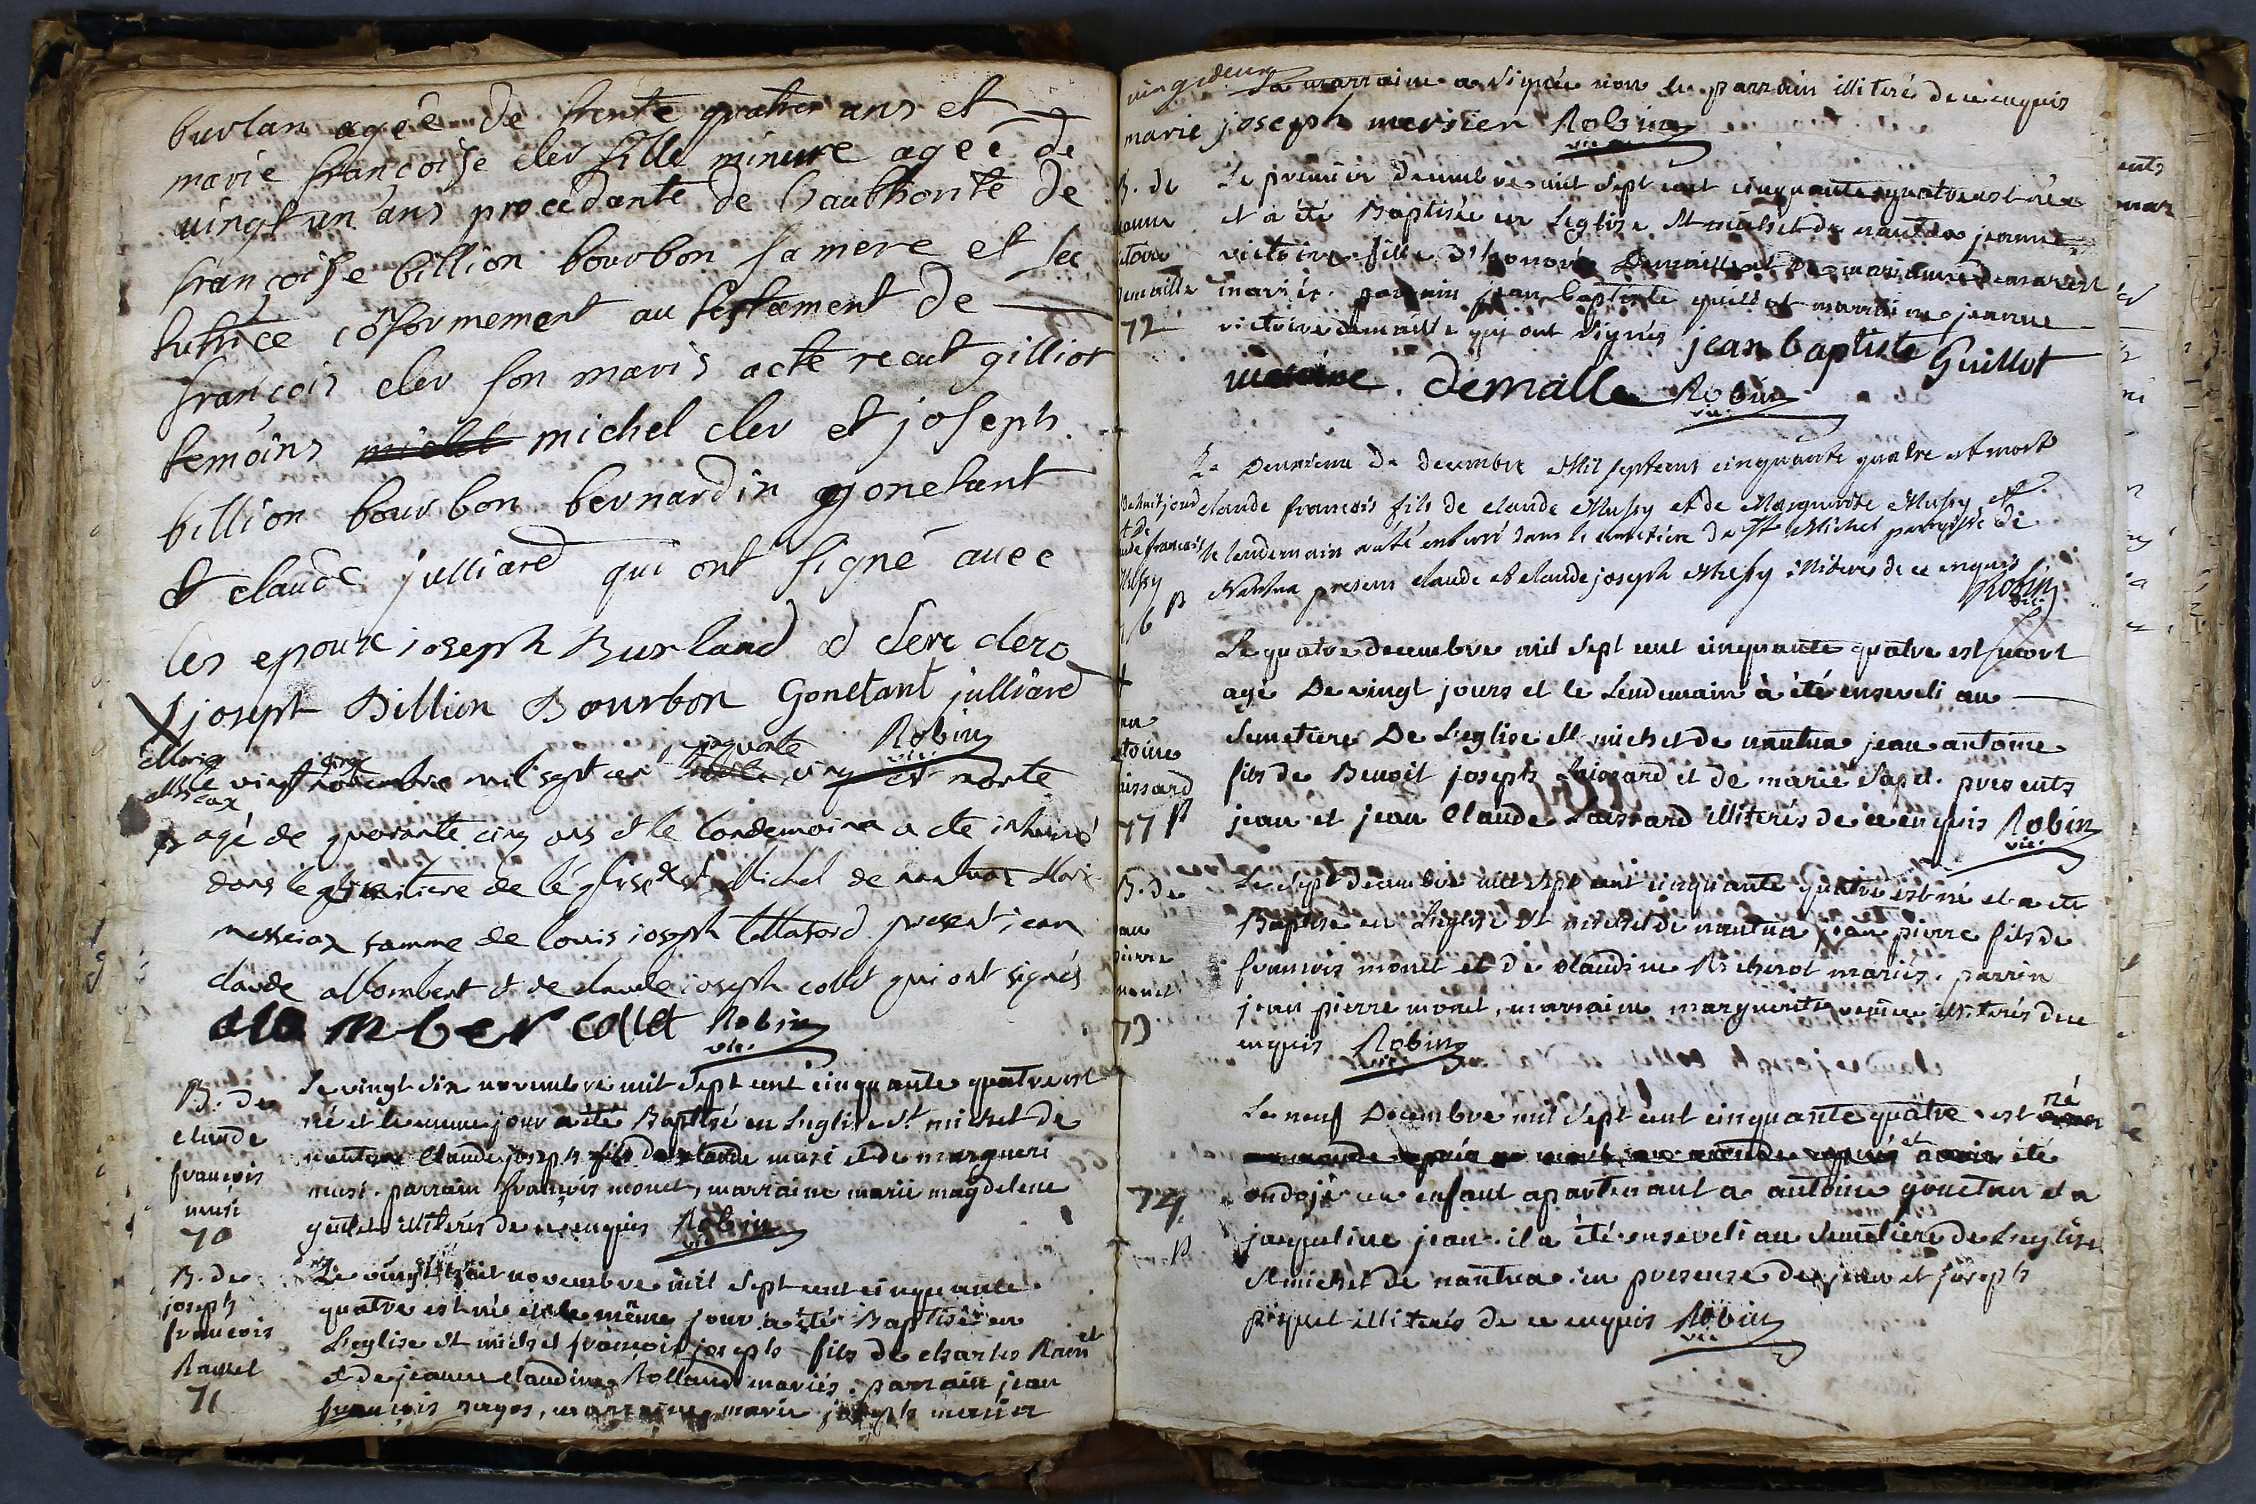 burlan ageé de trente quatre ans et
marie françoise cler fille mineure ageé de
vingt un ans procedante de l'authorité de
françoise billion bourbon sa mere et sa
tutrice conformement au testament de
françois cler son maris acte recut gilliot
temoins michel cler et joseph
billion bourbon bernardin gonetant
et claude julliard qui ont signé avec
les epoux joseph Burland d clere clero
joseph Billion Bourbon Gonetant julliard
Robin
vic.
Marie
messeax
le vingt cinq novembre mil sept cent cinquante est morte
agé de quarante cinq ans et le londemain a ete interré
dans le simitiere de l'église st Michel de nantua Marie
messeiax famme de louis joseph present jean
claude allombert et de claude joseph collet qui ont signés
alomber collet Robin
vic.
B. de
claude
françois
musi
70
Le vingt six novembre mil sept cent cinquante quatre est
né et le meme jour a été Baptisé en l'eglise st michel de
nantua claude joseph fils de claude musi et de margueri
musi. parrain françois monet, marraine marie magdelene
goulet illiterés de ce enquis Robin
vic
B. de
joseph
françois
Ravet
71
Le vingt huit novembre mil sept cent cinquante
quatre est né et le même jour a été Baptisé en
l'eglise st michel françois joseph fils de charles Ravet
et de jeanne claudine Rolland mariés. parrain jean
françois marraine marie joseph mersier
vingt deux
La marraine a signée non le parrain illiteré de ce enquis
marie joseph mersier Robin
vic
B. de
jeanne
victoire
demaille
72
Le premier decembre mil sept cent cinquante quatre est née
et a été Baptisée en l'eglise st michel de nantua jeanne
victoire fille d'honoré Demaille et de marianne demaret
mariés. parrain jean baptiste guillot marraine jeanne
victoire demaille qui ont signés jean baptiste Guillot
victoire. demalle Robin
vic.
Le Deuxieme de decembre Mil septcent cinquante quatre est mort
de huit jours claude françois fils de claude Mussy et de Marguerite Mussy et
le lendemain a été enterré dans le cimitière de St Michel parroisse de
Nantua presens claude et claude joseph Mussy illiteres de ce enquis
Robin
vic.
76 p
Le quatre decembre mil sept cent cinquante quatre est mort
agé De vingt jours et le lendemain à été enseveli au
semetiere De l'eglise st michel de nantua jean antoine
fils de Benoit joseph Laissard et de marie Sapet. presents
jean et jean claude Laissard illiterés de ce enquis Robin
vic.
jean
antoine
laissard
77 p
B. de
jean
pierre
monet
73
Le sept decembre mil sept cent cinquante quatre est né et a été
Baptisé en l'eglise st michel de nantua jean pierre fils de
francois monet et de claudine Richerot mariés. parrin
jean pierre monet, marraine marguerite illiterés de ce
enquis Robin
vic.
Le neuf Decembre mil sept cent cinquante quatre est né
et a été
74
p
ondojé un enfant apartenant a antoine gonetan et a
jaqueline jean. il a été enseveli au semetiere de l'eglise
st michel de nantua. en presense de jean et joseph
piquet illiterés de ce enquis Robin
vic